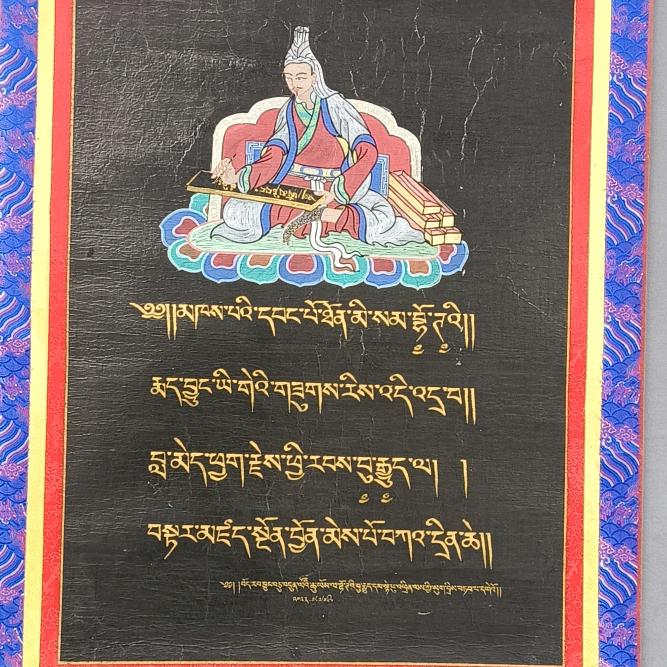 ༄༅།།མཁས་པའི་དབང་པོ་ཐོན་མི་སམ་བྷོ་ཊའི།།
རྨད་བྱུང་ཡི་གེའི་གཟུགས་རིས་འདི་འདྲ་བ།།
བླ་མེད་ཕྱག་རྗེས་ཕྱི་རབས་བུ་རྒྱུད་ལ། །
བསྟར་མཛད་སྔོན་བྱོན་མེས་པོ་བཀའ་དྲིན་ཆེ།།